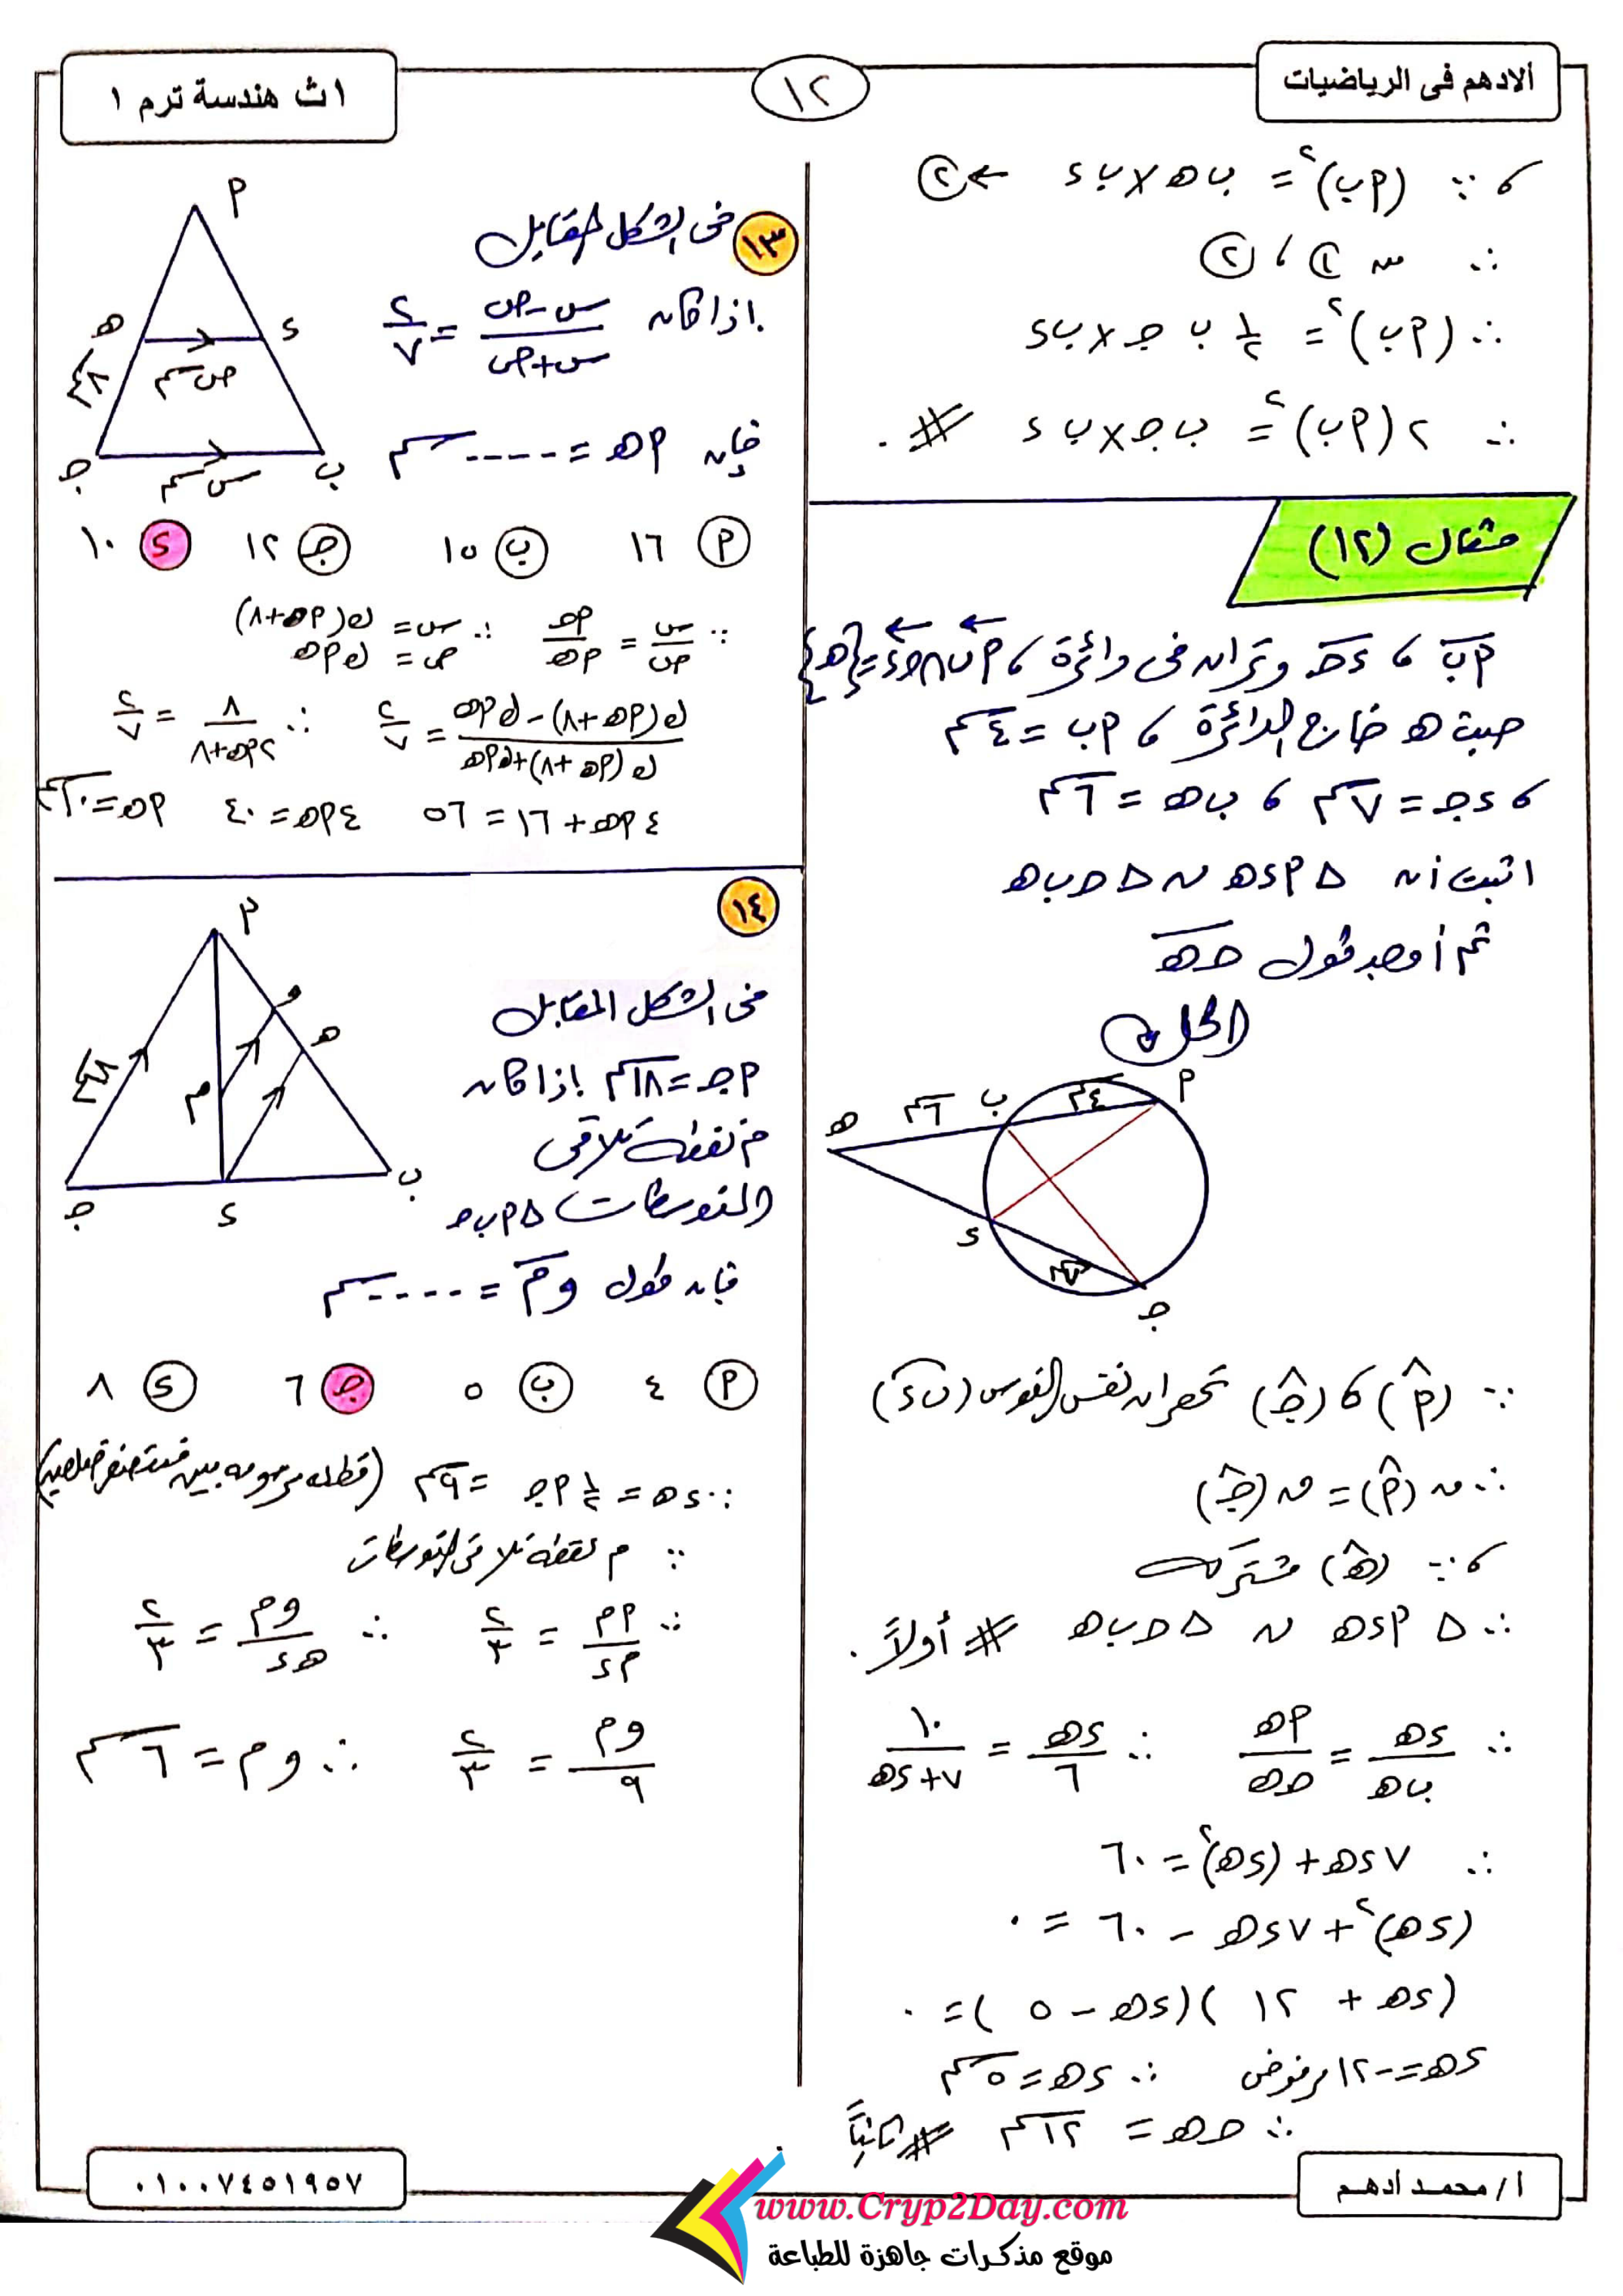 ألادهم فى الرياضيات
١٢
١ث هندسة ترم ١
، ∵ (أب)٢ = ب هـ × ب د ← ②
∴ من ① ، ②
∴ (أب)٢ = ١/٢ ب جـ × ب د
∴ ٢(أب)٢ = ب جـ × ب د #
مثال (١٢)
أب ، جـ د وتران فى دائرة ، أب ∩ جـ د = {هـ}
حيث هـ خارج الدائرة ، أب = ٤سم
، د جـ = ٧سم ، ب هـ = ٦سم
اثبت أن Δ أ د هـ ~ Δ جـ ب هـ
ثم أوجد طول جـ هـ
الحل
أ
٤سم
ب
٦سم
هـ
د
٧سم
جـ
∵ (أ) ، (جـ) تحصران نفس القوس (ب د)
∴ ق(أ) = ق(جـ)
، ∵ (هـ) مشتركة
∴ Δ أ د هـ ~ Δ جـ ب هـ # أولاً
∴ د هـ / ب هـ = أ هـ / جـ هـ ∴ د هـ / ٦ = ١٠ / (٧ + د هـ)
∴ ٧ د هـ + (د هـ)٢ = ٦٠
(د هـ)٢ + ٧ د هـ − ٦٠ = ٠
(د هـ + ١٢)(د هـ − ٥) = ٠
د هـ = −١٢ مرفوض ∴ د هـ = ٥سم
∴ جـ هـ = ١٢سم # ثانياً
١٣ فى الشكل المقابل
إذا كان (س − ص)/(س + ص) = ٢/٧
فإن أ هـ = ---- سم
أ
د
هـ
ص سم
٨سم
ب
جـ
س سم
أ ١٦ ب ١٥ جـ ١٢ د ١٠
∵ س/ص = أجـ/أهـ ∴ س = ك(أهـ + ٨)
ص = ك أهـ
(ك(أهـ + ٨) − ك أهـ)/(ك(أهـ + ٨) + ك أهـ) = ٢/٧ ∴ ٨/(٢أهـ + ٨) = ٢/٧
٤ أهـ + ١٦ = ٥٦ ٤ أهـ = ٤٠ أهـ = ١٠سم
١٤
فى الشكل المقابل
أجـ = ١٨سم إذا كان
م نقطة تلاقى
المتوسطات Δ أ ب جـ
فإن طول و م = ---- سم
أ
و
هـ
م
١٨سم
ب
د
جـ
أ ٤ ب ٥ جـ ٦ د ٨
∵ د هـ = ١/٢ أجـ = ٩سم (قطعة مرسومة بين منتصفى ضلعين)
∵ م نقطة تلاقى المتوسطات
∴ أم/أد = ٢/٣ ∴ و م/هـ د = ٢/٣
و م/٩ = ٢/٣ ∴ و م = ٦سم
أ/ محمد أدهم
٠١٠٠٧٤٥١٩٥٧
www.Cryp2Day.com
موقع مذكرات جاهزة للطباعة